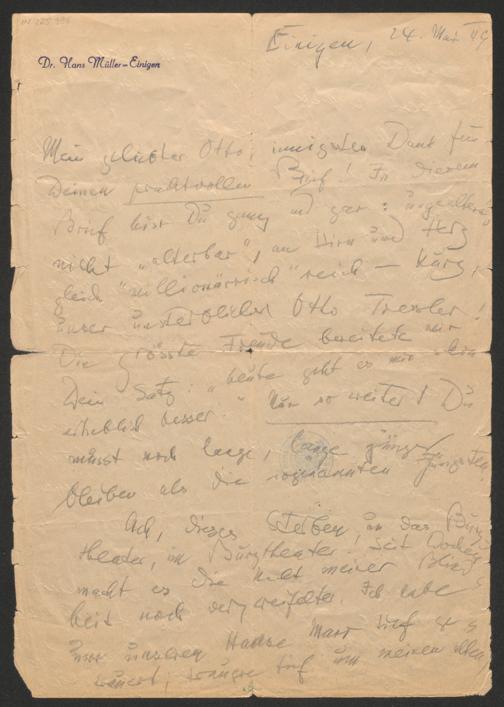 Einigen, 24. Mai 49
Dr. Hans Müller-Einigen
Mein geliebter Otto, innigsten Dank für
Deinen prachtvollen Brief! In diesem
Brief bist Du ganz und gar: ungealtert,
nicht „alterbar“, an Hirn und Herz
gleich „millionärrisch“ reich — kurz,
unser unsterblicher Otto Tressler!
Die grösste Freude bereitete mir
Dein Satz: „heute geht es mir
erheblich besser.“ Nur so weiter! Du
musst noch lange, lange jünger
bleiben als die sogenannten Jüngsten
Ach, dieses Sterben, an das Burg
theater, im Burgtheater! Seit
macht es die meiner Blind
heit noch verzweifelter. Ich habe
um unseren Hanse Marr tief
um meinen alten